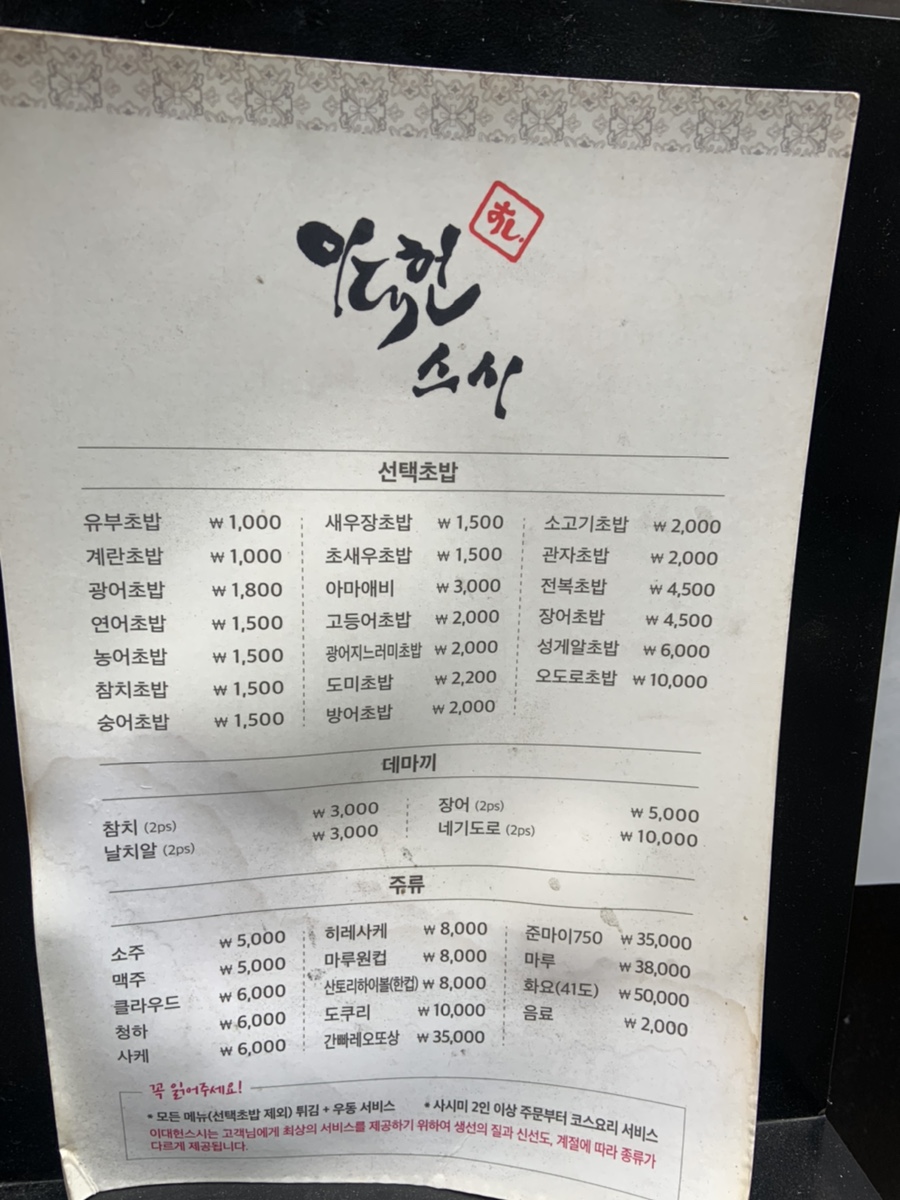 이대헌
스시
선택초밥
유부초밥 ₩ 1,000
계란초밥 ₩ 1,000
광어초밥 ₩ 1,800
연어초밥 ₩ 1,500
농어초밥 ₩ 1,500
참치초밥 ₩ 1,500
숭어초밥 ₩ 1,500
새우장초밥 ₩ 1,500
초새우초밥 ₩ 1,500
아마애비 ₩ 3,000
고등어초밥 ₩ 2,000
광어지느러미초밥 ₩ 2,000
도미초밥 ₩ 2,200
방어초밥 ₩ 2,000
소고기초밥 ₩ 2,000
관자초밥 ₩ 2,000
전복초밥 ₩ 4,500
장어초밥 ₩ 4,500
성게알초밥 ₩ 6,000
오도로초밥 ₩ 10,000
데마끼
참치 (2ps) ₩ 3,000
날치알 (2ps) ₩ 3,000
장어 (2ps) ₩ 5,000
네기도로 (2ps) ₩ 10,000
주류
소주 ₩ 5,000
맥주 ₩ 5,000
클라우드 ₩ 6,000
청하 ₩ 6,000
사케 ₩ 6,000
히레사케 ₩ 8,000
마루원컵 ₩ 8,000
산토리하이볼(한컵) ₩ 8,000
도쿠리 ₩ 10,000
간빠레오또상 ₩ 35,000
준마이750 ₩ 35,000
마루 ₩ 38,000
화요(41도) ₩ 50,000
음료 ₩ 2,000
꼭 읽어주세요!
• 모든 메뉴(선택초밥 제외) 튀김 + 우동 서비스 • 사시미 2인 이상 주문부터 코스요리 서비스
이대헌스시는 고객님에게 최상의 서비스를 제공하기 위하여 생선의 질과 신선도, 계절에 따라 종류가
다르게 제공됩니다.